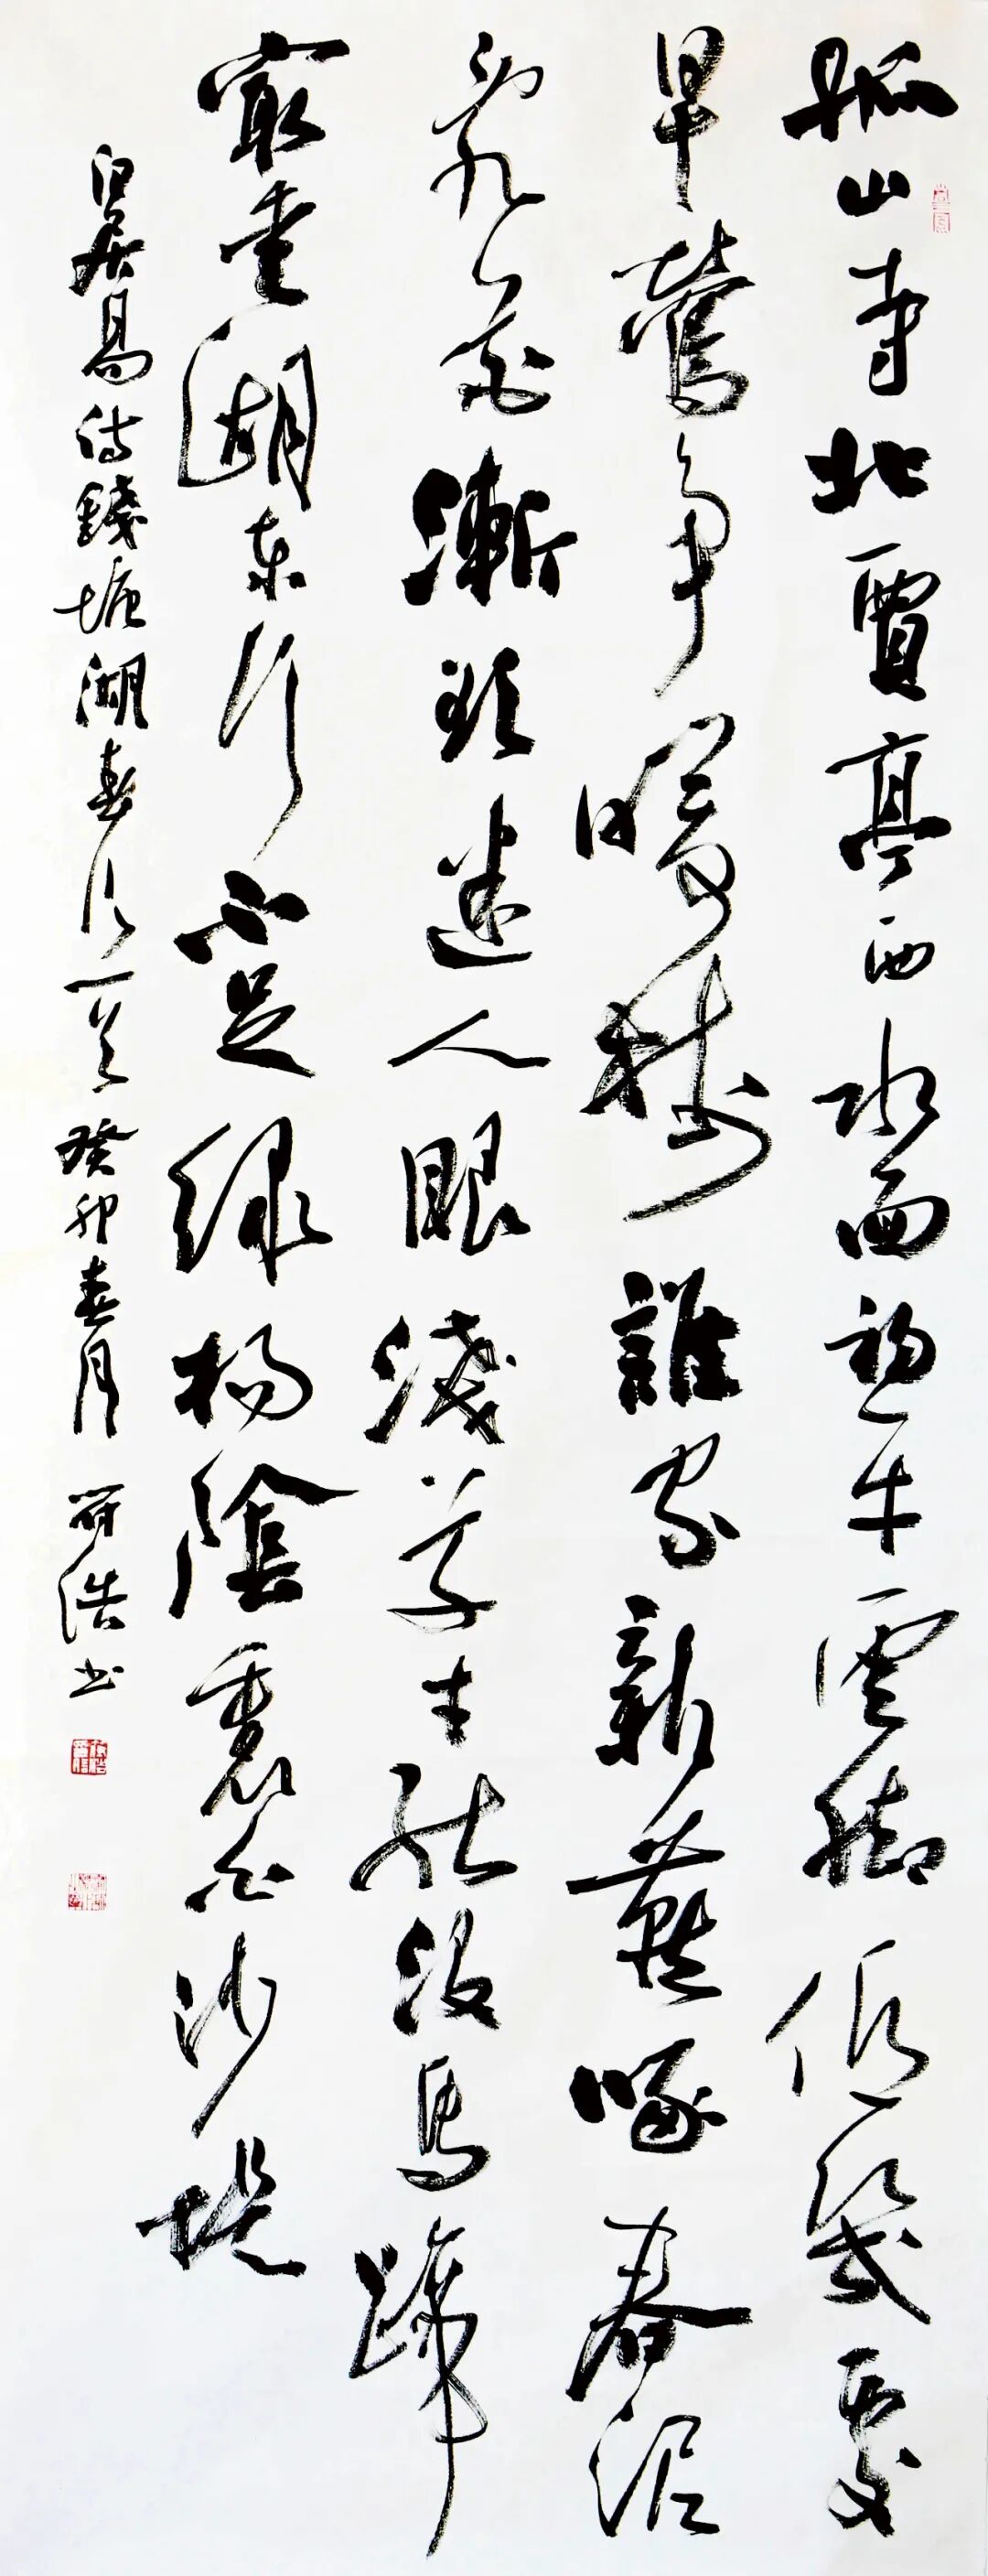 孤山寺北賈亭西水面初平雲腳低幾處
早鶯争暖樹誰家新燕啄春泥
亂花漸欲迷人眼淺草才能沒馬蹄
最愛湖東行不足绿楊陰裏白沙堤
白居易詩錢塘湖春行一首 癸卯春月 浩书